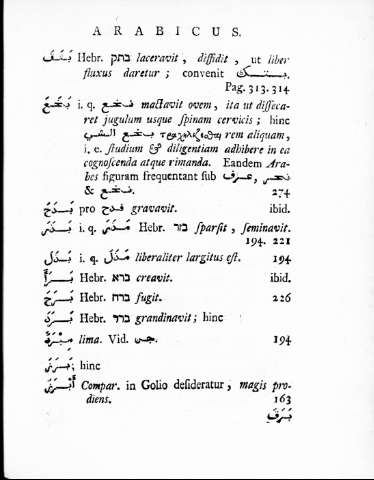 ARABICUS.
Hebr. בתק laceravit, diffidit, ut liber
fluxus daretur; convenit
Pag. 313. 314
بَخَعَ i. q. نخع mactavit ovem, ita ut diſſeca-
ret jugulum usque ſpinam cervicis; hinc
بخع الشي τραχηλίζεσθαι rem aliquam,
i. e. ſtudium & diligentiam adhibere in ea
cognoſcenda atque rimanda. Eandem Ara-
bes figuram frequentant ſub عرف,
& نخع. 274
بَدَحَ pro فدح gravavit. ibid.
i. q. Hebr. בזר ſparſit, ſeminavit.
194. 221
بَدَلَ i. q. مَدَلَ liberaliter largitus eſt. 194
بَرَأَ Hebr. ברא creavit. ibid.
بَرَحَ Hebr. ברח fugit. 226
بَرَدَ Hebr. ברד grandinavit; hinc
مِبْرَدٌ lima. Vid. 194
hinc
Compar. in Golio deſideratur, magis pro-
diens. 163
بَرَقَ